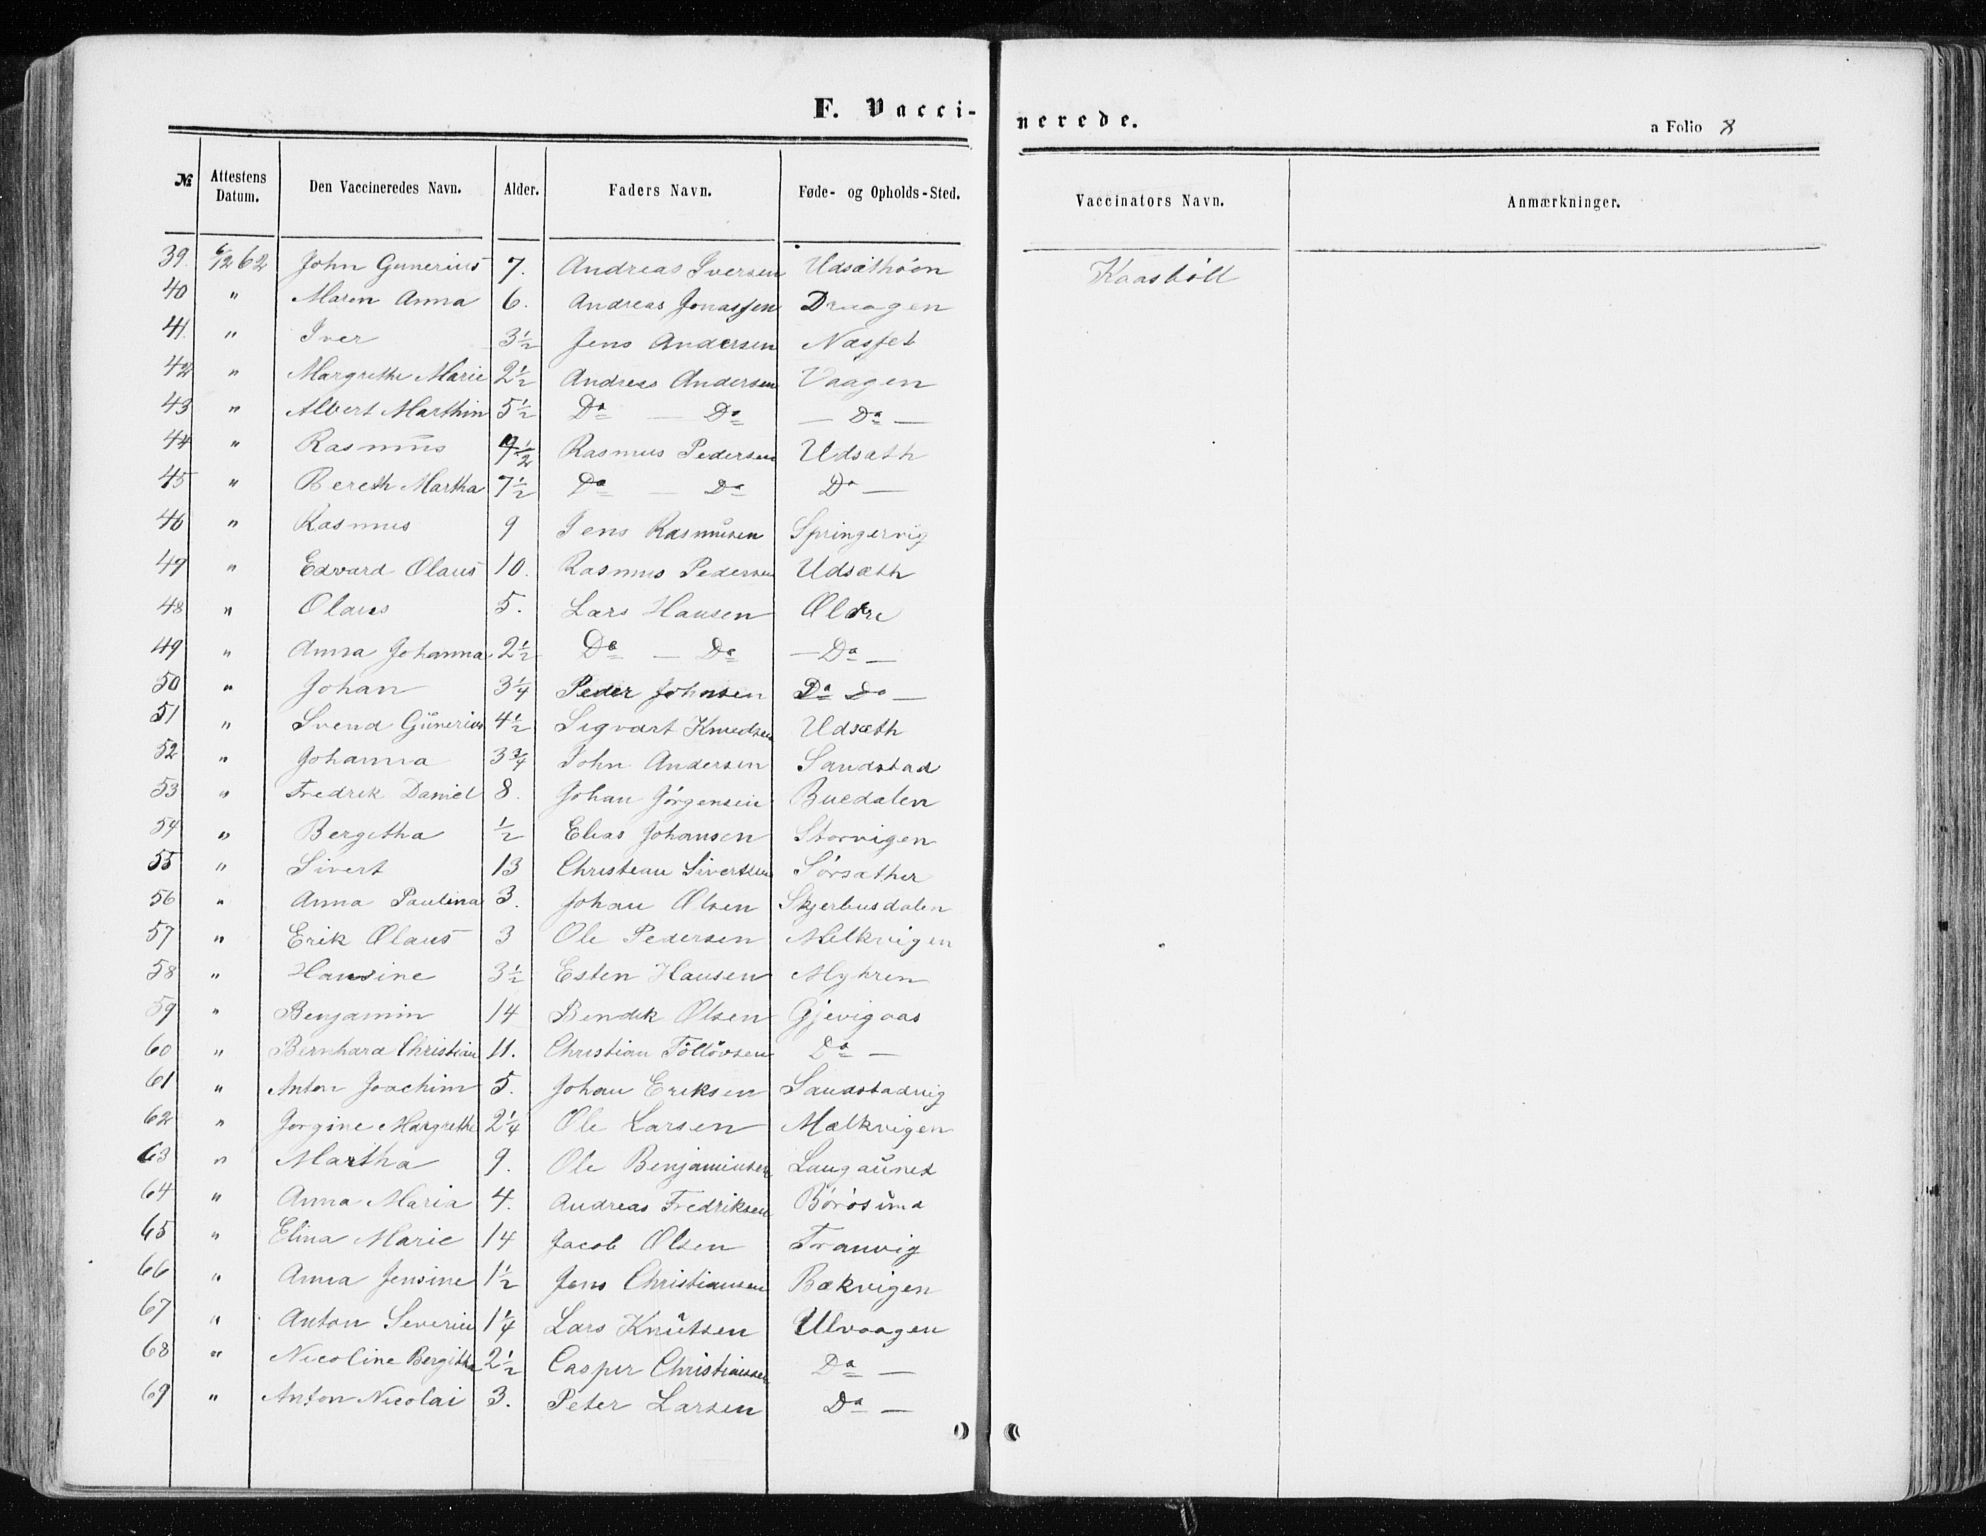 F. Vaccinerede.
a Folio 8
№ Attestens Datum. Den Vaccineredes Navn. Alder. Faders Navn. Føde- og Opholds-Sted. Vaccinators Navn. Anmærkninger.
39. 6/12 62 John Gunerius 7. Andreas Iversen Udsæthøen Kaasbøll
40 " Maren Anna 6. Andreas Jonassen Draagen
41. " Iver 3½ Jens Andersen Næsset
42 " Margrethe Marie 2½ Andreas Andersen Vaagen
43 " Albert Marthin 5½ Do — Do — Do —
44 " Rasmus ½ Rasmus Pedersen Udsæth
45 " Bereth Martha 7½ Do — Do Do —
46 " Rasmus 9 Jens Rasmusen Springervig
49 " Edvard Olaus 10. Rasmus Pedersen Udsæth
48 " Olaus 5. Lars Hansen Øldre
49 " Anna Johanna 2½ Do — Do — Do —
50 " Johan 3¼ Peder Johnsen Do Do —
51 " Svend Gunerius 4½ Sigvart Knudsen Udsæth
52 " Johanna 3¾ John Andersen Sandstad
53 " Fredrik Daniel 8. Johan Jørgensen Buedalen
54 " Bergitha ½ Elias Johansen Storvigen
55 " Sivert 13 Christian Sivertsen Sørsæther
56 " Anna Paulina 3. Johan Olsen Skjerbusdalen
57 " Erik Olaus 3 Ole Pedersen Melkvigen
58 " Hansine 3½ Esten Hansen Myhren
59 " Benjamin 14 Bendik Olsen Gjevigaas
60 " Bernhard Christian 11. Christian Tølløvsen Do —
61 " Anton Joachim 5. Johan Eriksen Sandstadvig
62 " Jørgine Margrethe 2¼ Ole Larsen Mælkvigen
63 " Martha 9. Ole Benjaminsen Laugaunet
64 " Anna Maria 4. Andreas Fredriksen Børøsund
65 " Elina Marie 14 Jacob Olsen Tranvig
66 " Anna Jensine 1½ Jens Christiansen Bækvigen
67 " Anton Severin 1¼ Lars Knutsen Ulvaagen
68 " Nicoline Bergitha 2½ Casper Christiansen Do —
69 " Anton Nicolai 3. Peter Larsen Do —